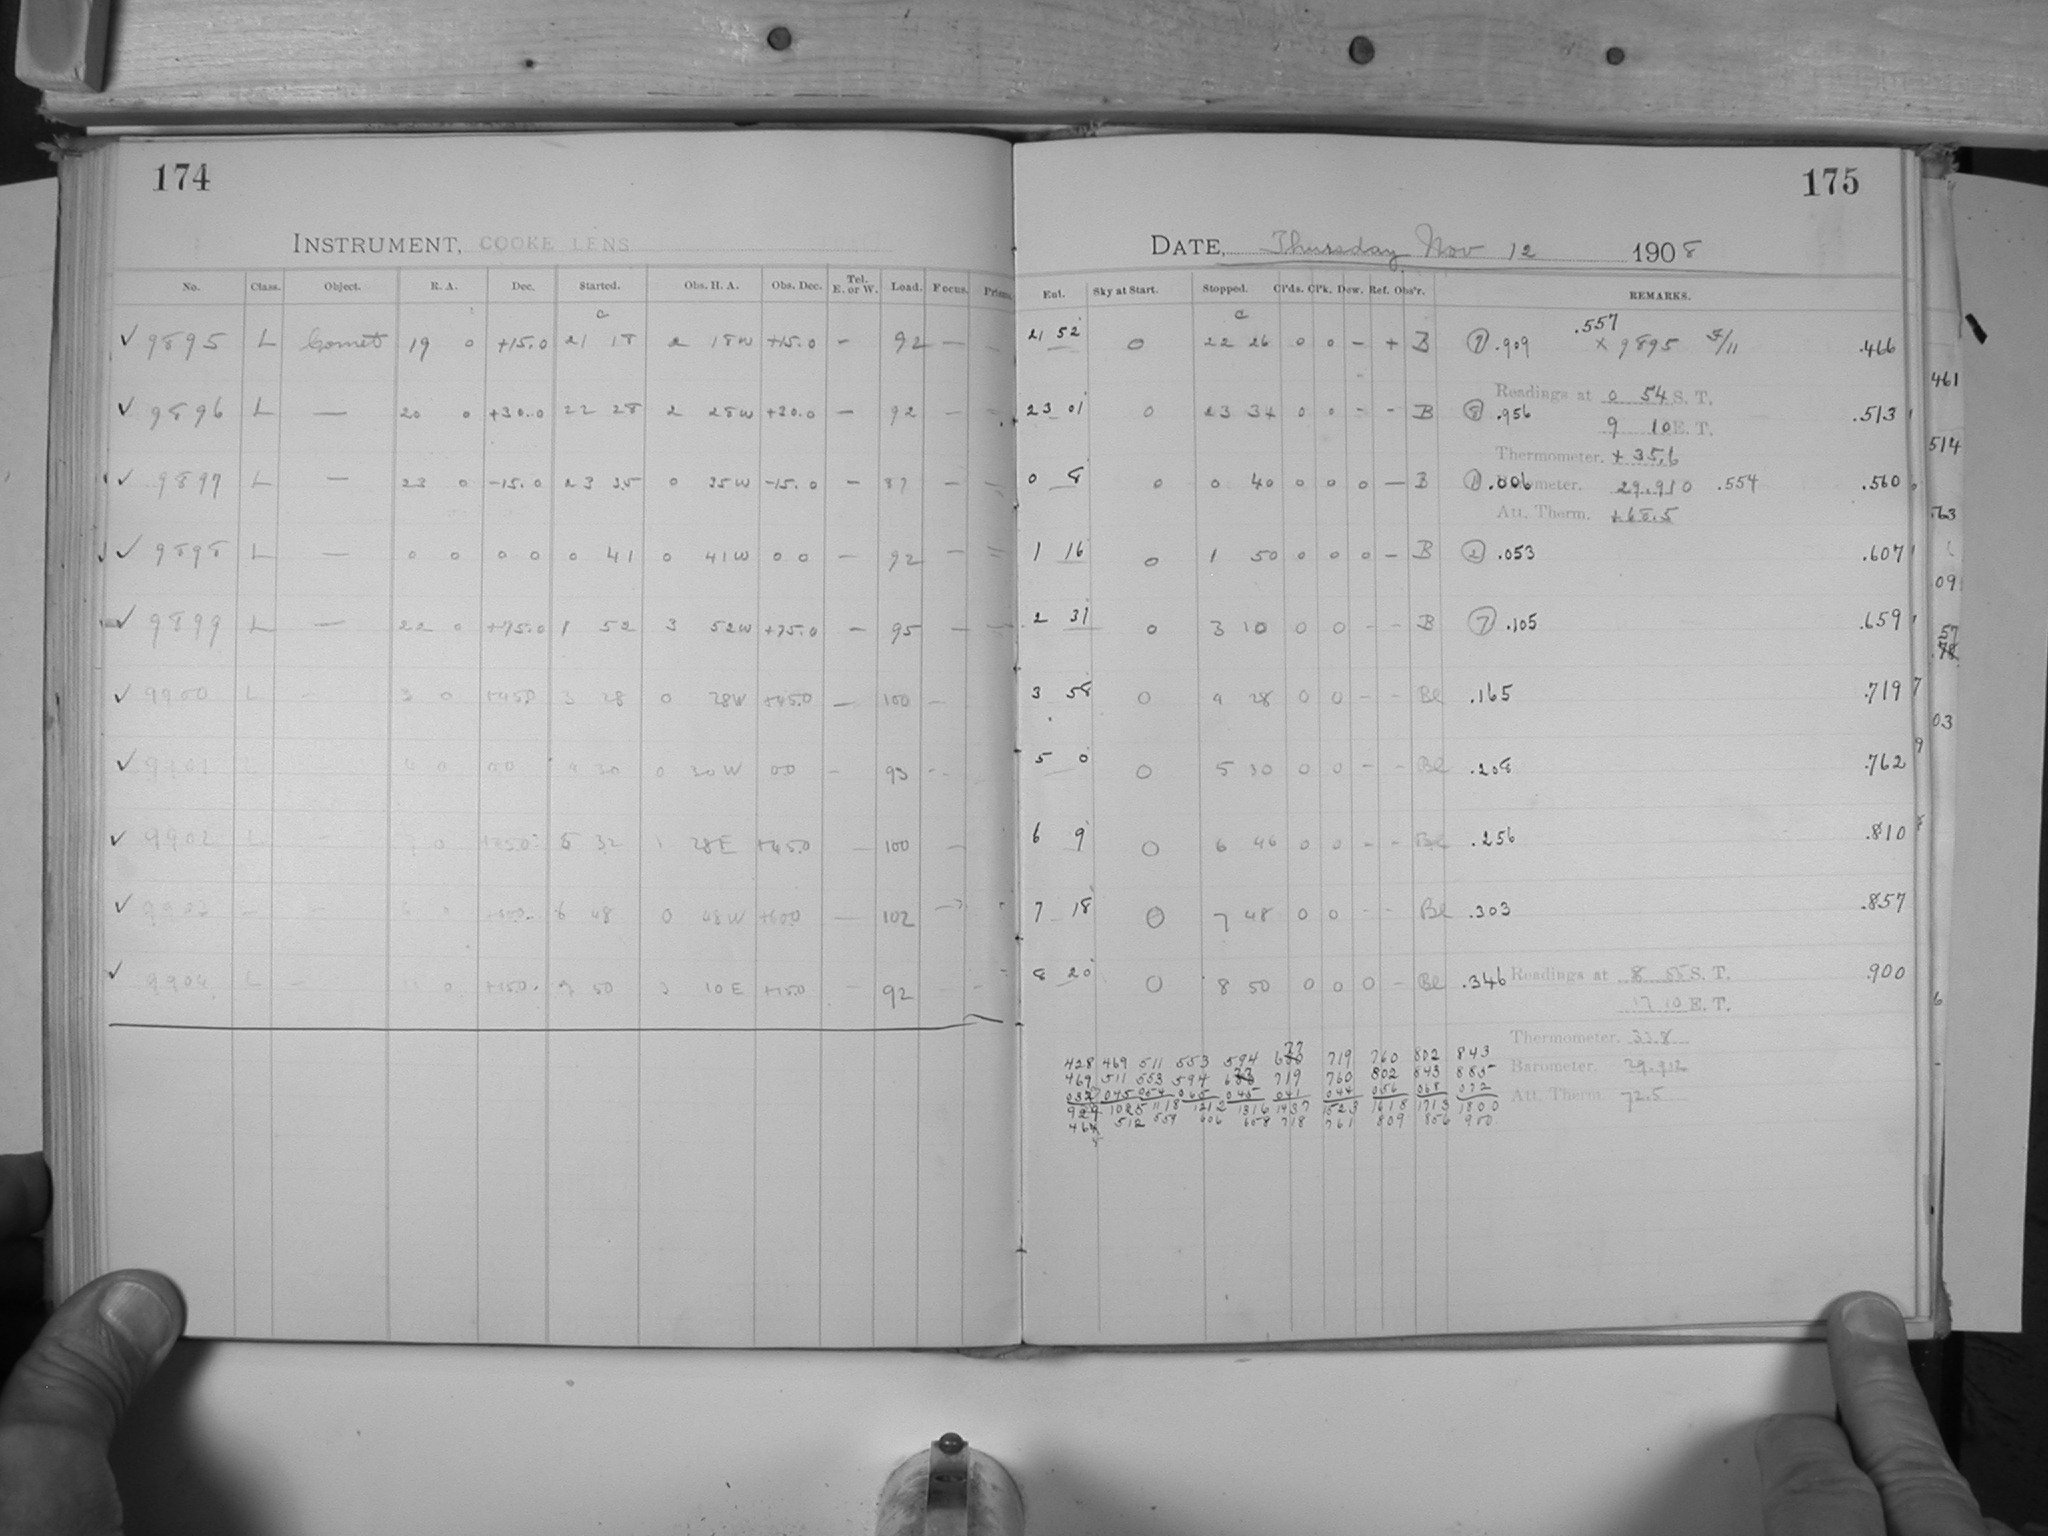 174
INSTRUMENT, COOKE LENS
No. Class. Object. R. A. Dec. Started. Obs. H. A. Obs. Dec. Tel. E. or W. Load. Focus. Prisms.
c
✓ 9895 L Comet 19 0 +15.0 21 18 2 18W +15.0 — 92 — —
✓ 9896 L — 20 0 +30.0 22 28 2 28W +30.0 — 92 — —
✓ 9897 L — 23 0 -15.0 23 35 0 35W -15.0 — 87 — —
✓ 9898 L — 0 0 0 0 0 41 0 41W 0 0 — 92 — —
✓ 9899 L — 22 0 +75.0 1 52 3 52W +75.0 — 95 — —
✓ 9900 L — 3 0 +45.0 3 28 0 28W +45.0 — 100 —
✓ 9901 L — 4 0 00 4 30 0 30W 00 — 93 —
✓ 9902 L — 7 0 +45.0 5 32 1 28E +45.0 — 100 —
✓ 9903 L — 6 0 +60.0 6 48 0 48W +60.0 — 102 —
✓ 9904 L — 11 0 +15.0 7 50 3 10E +15.0 — 92 —
175
DATE, Thursday Nov 12 1908
Ent. Sky at Start. Stopped. Cl'ds. Cl'k. Dew. Ref. Obs'r. REMARKS.
c
21 52 0 22 26 0 0 — + B .909 .557 × 9895 .466
Readings at 0 54 S. T.
23 01 0 23 34 0 0 — — B .956 .513
9 10 E. T.
Thermometer. +35.6
0 8 0 0 40 0 0 0 — B .006 Barometer. 29.910 .554 .560
Att. Therm. +68.5
1 16 0 1 50 0 0 0 — B .053 .607
2 31 0 3 10 0 0 — — B .105 .659
3 58 0 4 28 0 0 — — Bl .165 .719
5 0 0 5 30 0 0 — — Bl .208 .762
6 9 0 6 46 0 0 — — Bl .256 .810
7 18 0 7 48 0 0 — — Bl .303 .857
8 20 0 8 50 0 0 0 — Bl .346 Readings at 8 55 S. T. .900
17 10 E. T.
Thermometer. 33.8
Barometer. 29.912
Att. Therm. 72.5
428 469 511 553 594 719 760 802 843
469 511 553 594 719 760 802 843 885
032 045 054 065 045 041 044 056 068 072
929 1025 1118 1212 1316 1437 1523 1618 1713 1800
512 559 606 658 718 761 809 856 900
461
514
63
09
57
03